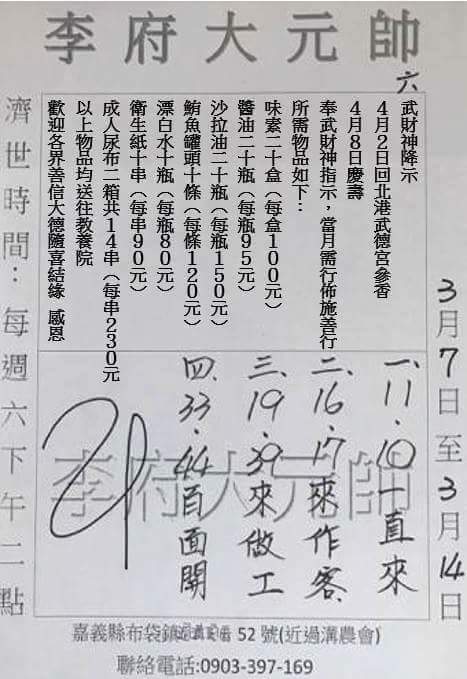 李府大元帥
六
武財神降示
4月2日回北港武德宮參香
4月8日慶壽
奉武財神指示，當月需行佈施善行
所需物品如下：
味素二十盒（每盒100元）
醬油二十瓶（每瓶95元）
沙拉油二十瓶（每瓶150元）
鮪魚罐頭十條（每條120元）
漂白水十瓶（每瓶80元）
衛生紙十串（每串90元）
成人尿布二箱共14串（每串230元
以上物品均送往教養院
歡迎各界善信大德隨喜結緣 感恩
3月7日至3月14日
一、11.10一直來
二、16.17來作客
三、19.39來做工
四、33.44百面開
李府大元帥
濟世時間：每週六下午二點
嘉義縣布袋鎮
52號(近過溝農會)
聯絡電話:0903-397-169